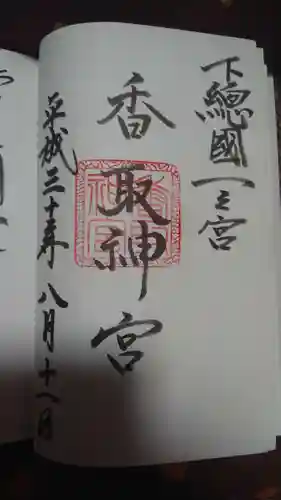 下總國一之宮
香取神宮
平成三十年八月十八日